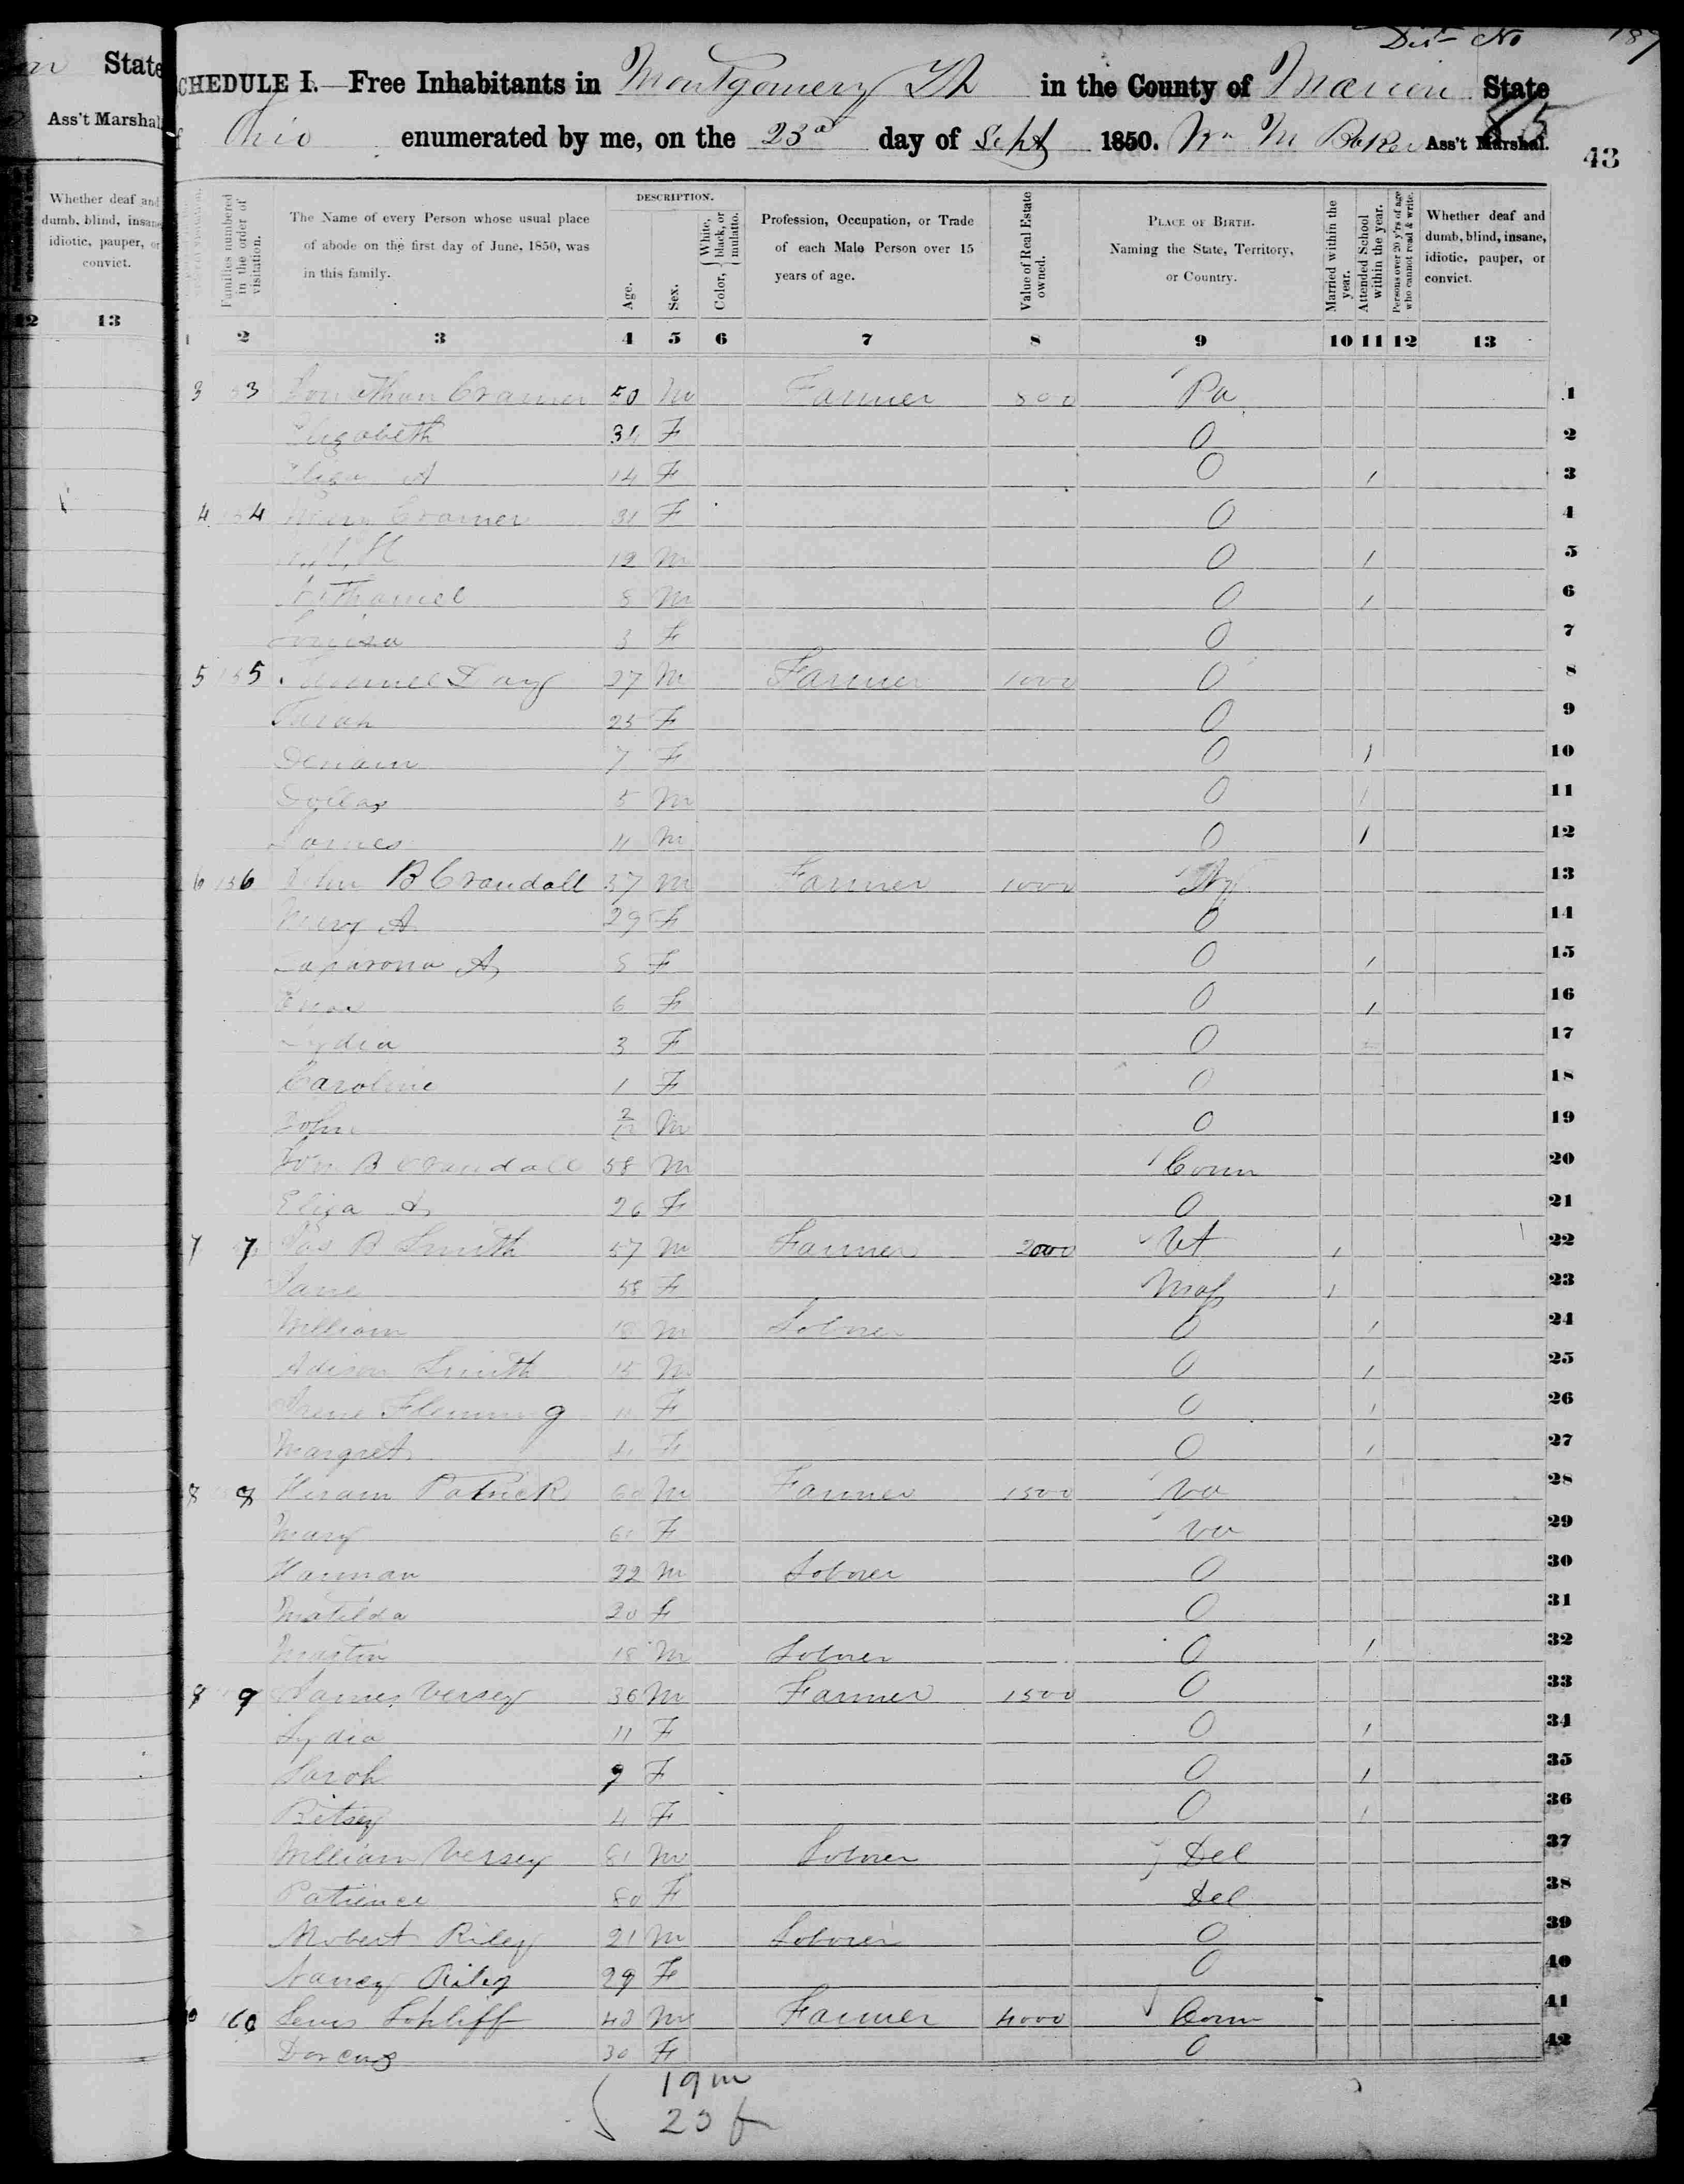 Dist No 187
State
Ass't Marshal
Whether deaf and
dumb, blind, insane
idiotic, pauper, or
convict.
12 13
SCHEDULE I.—Free Inhabitants in Montgomery Th in the County of Marion State
85
of Ohio enumerated by me, on the 23d day of Sept 1850. Wm M Baker Ass't Marshal. 43
Families numbered in the order of visitation.
The Name of every Person whose usual place of abode on the first day of June, 1850, was in this family.
DESCRIPTION.
Age.
Sex.
Color, White, black, or mulatto.
Profession, Occupation, or Trade of each Male Person over 15 years of age.
Value of Real Estate owned.
PLACE OF BIRTH. Naming the State, Territory, or Country.
Married within the year.
Attended School within the year.
Persons over 20 y'rs of age who cannot read & write.
Whether deaf and dumb, blind, insane, idiotic, pauper, or convict.
1 2 3 4 5 6 7 8 9 10 11 12 13
3 53 Jonathan Cramer 50 M Farmer 800 Pa 1
Elizabeth 34 F O 2
Eliza A 14 F O 1 3
4 154 Cramer 31 F O 4
12 M O 1 5
Nathaniel 8 M O 1 6
Louisa 3 F O 7
5 155 Day 27 M Farmer 1000 O 8
25 F O 9
7 F O 1 10
5 M O 1 11
James 11 M O 1 12
6 156 John B Crandall 37 M Farmer 1000 Ny 13
Mary A 29 F O 14
A 8 F O 1 15
6 F O 1 16
Lydia 3 F O 17
Caroline 1 F O 18
John 2/12 M O 19
B Crandall 58 M Conn 20
Eliza A 26 F O 21
7 7 Jas B Smith 57 M Farmer 2000 Vt 1 22
Jane 58 F Mass 1 23
William 18 M Laborer O 1 24
Adison Smith 15 M O 1 25
Flemming 11 F O 1 26
Margret 4 F O 1 27
8 8 Hiram Patrick 60 M Farmer 1500 Va 28
Mary 61 F Va 29
Harman 22 M Laborer O 30
Matilda 20 F O 31
Martin 18 M Laborer O 1 32
8 9 James Versey 36 M Farmer 1500 O 33
Lydia 11 F O 1 34
Sarah 9 F O 1 35
Betsey 4 F O 1 36
William Versey 81 M Laborer Del 37
Patience 80 F Del 38
Robert Riley 21 M Laborer O 39
Nancy Riley 29 F O 40
160 Lewis Topliff 43 M Farmer 4000 Conn 41
Dorcus 30 F O 42
19 m
23 f